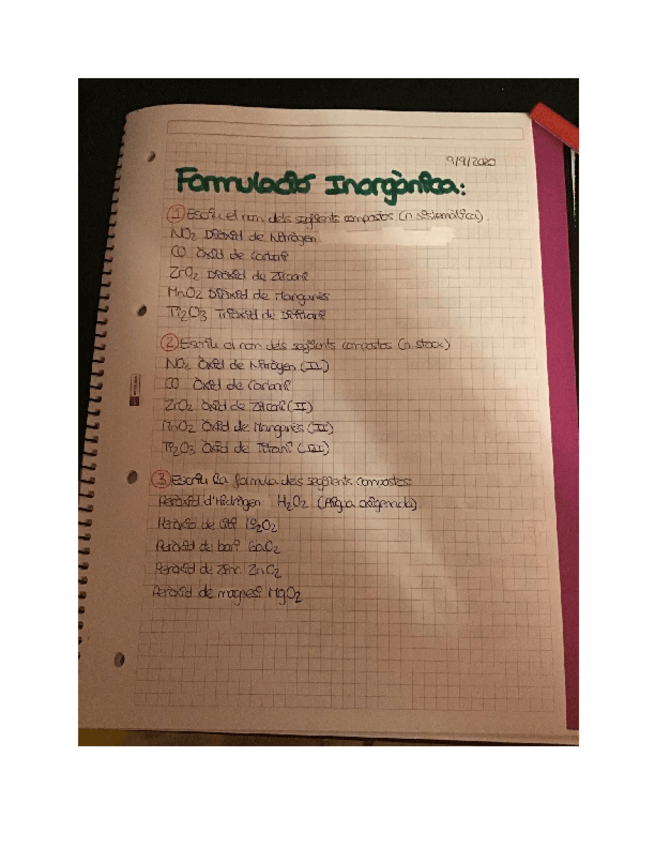 9/9/2020
Formulació Inorgànica:
① Escriu el nom dels següents compostos (n. sistemàtica).
NO₂ Diòxid de Nitrògen
CO Òxid de Carboni
ZrO₂ Diòxid de Zirconi
MnO₂ Diòxid de Manganès
Ti₂O₃ Triòxid de
② Escriu el nom dels següents compostos (n. stock)
NO₂ Òxid de Nitrògen (II)
CO Òxid de Carboni
ZrO₂ Òxid de Zirconi (II)
MnO₂ Òxid de Manganès (II)
Ti₂O₃ Òxid de Titani (III)
③ Escriu la fórmula dels següents compostos:
Peròxid d'Hidrògen H₂O₂ (Aigua oxigenada)
Peròxid de liti Li₂O₂
Peròxid de bari BaO₂
Peròxid de zinc ZnO₂
Peròxid de magnesi MgO₂